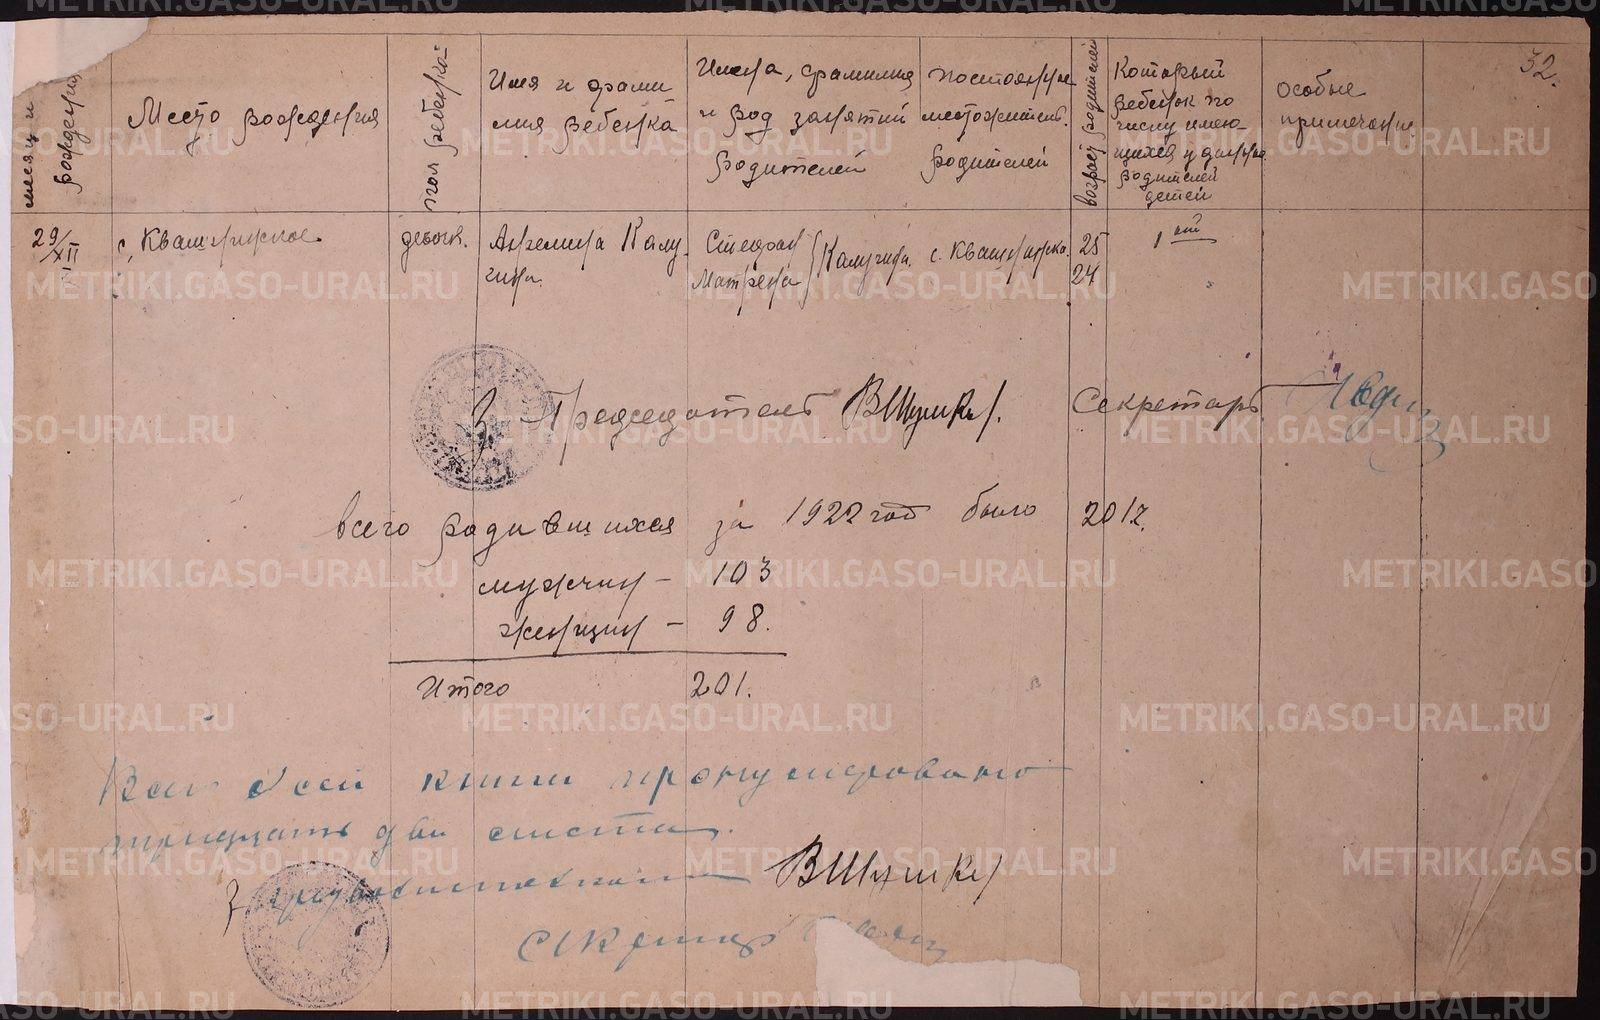 32.
месяц и
рождения
Место рождения
пол ребенка
Имя и фами
лия ребенка
Имена, фамилия
и род занятий
родителей
постоянное
местожительс.
родителей
возраст родителей
Который
ребенок по
числу имею-
щихся у данных
родителей
детей
особые
примечание
29/XII
с. Квашнинское
девочк.
Ангелина Калу
гина.
Стефан
Матрена
Калугины
с. Квашнинск.
25
24
1 ый
З. Председатель ВШушкі. Секретарь
всего родившихся за 1922 год было 201 г.
мужчин - 103
женщин - 98.
Итого 201.
Всего в сей книги пронумеровано
тридцать два листа.
З. председателя ВШушкі
Секретар
METRIKI.GASO-URAL.RU